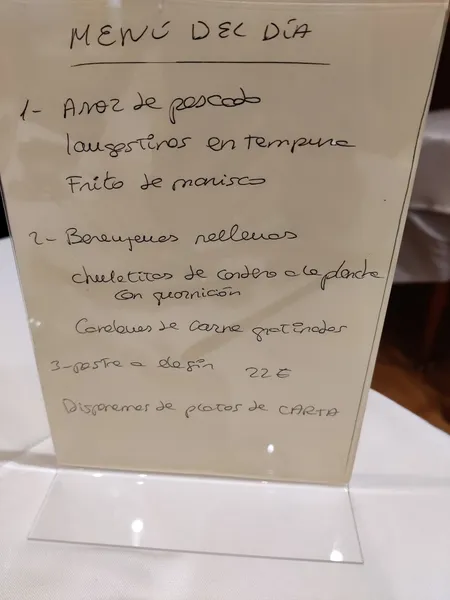 MENÚ DEL DÍA
1- Arroz de pescado
langostinos en tempura
Frito de marisco
2- Berenjenas rellenas
chuletitas de cordero a la plancha
con guarnición
Canelones de carne gratinados
3- postre a elegir 22 €
Disponemos de platos de CARTA